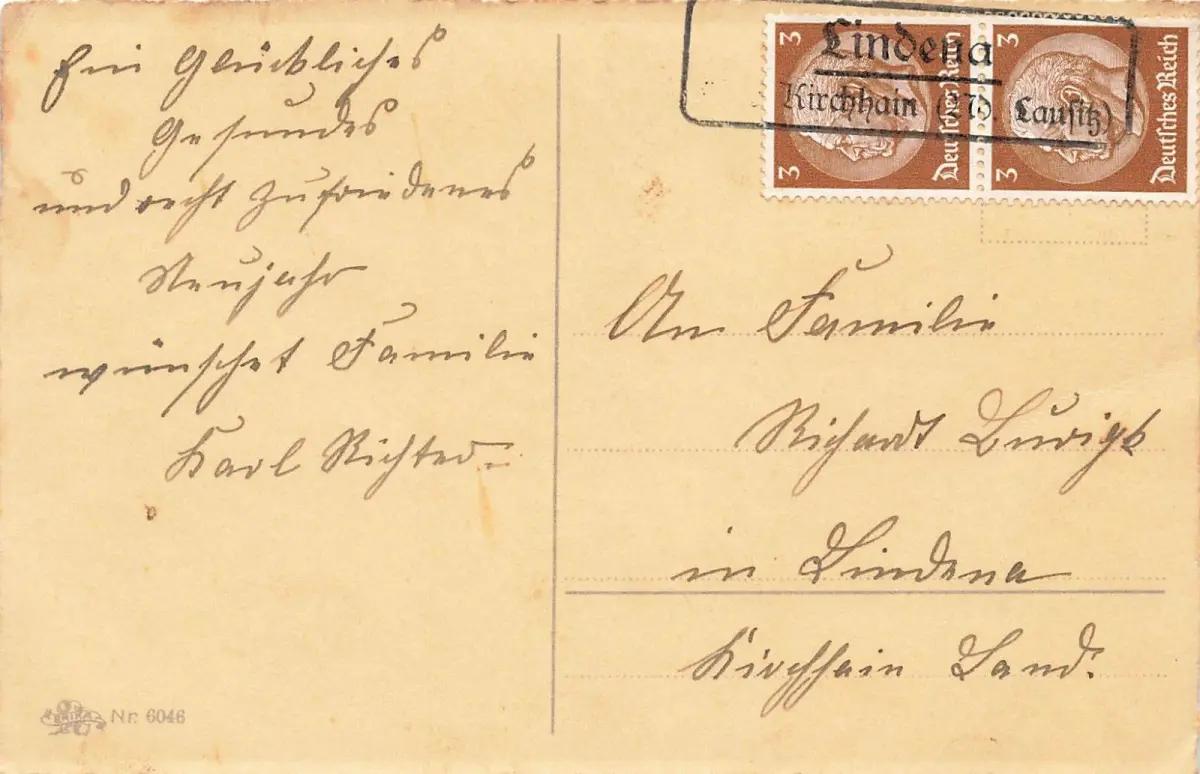 Ein Glückliches
Gesundes
und recht zufriedenes
Neujahr
wünschet Familie
Karl Richter.
Lindena
Kirchhain (Nd. Lausitz)
3
Deutsches Reich
3
3
Deutsches Reich
3
An Familie
Richardt
in Lindena
Kirchhain Land.
ERIKA Nr. 6046